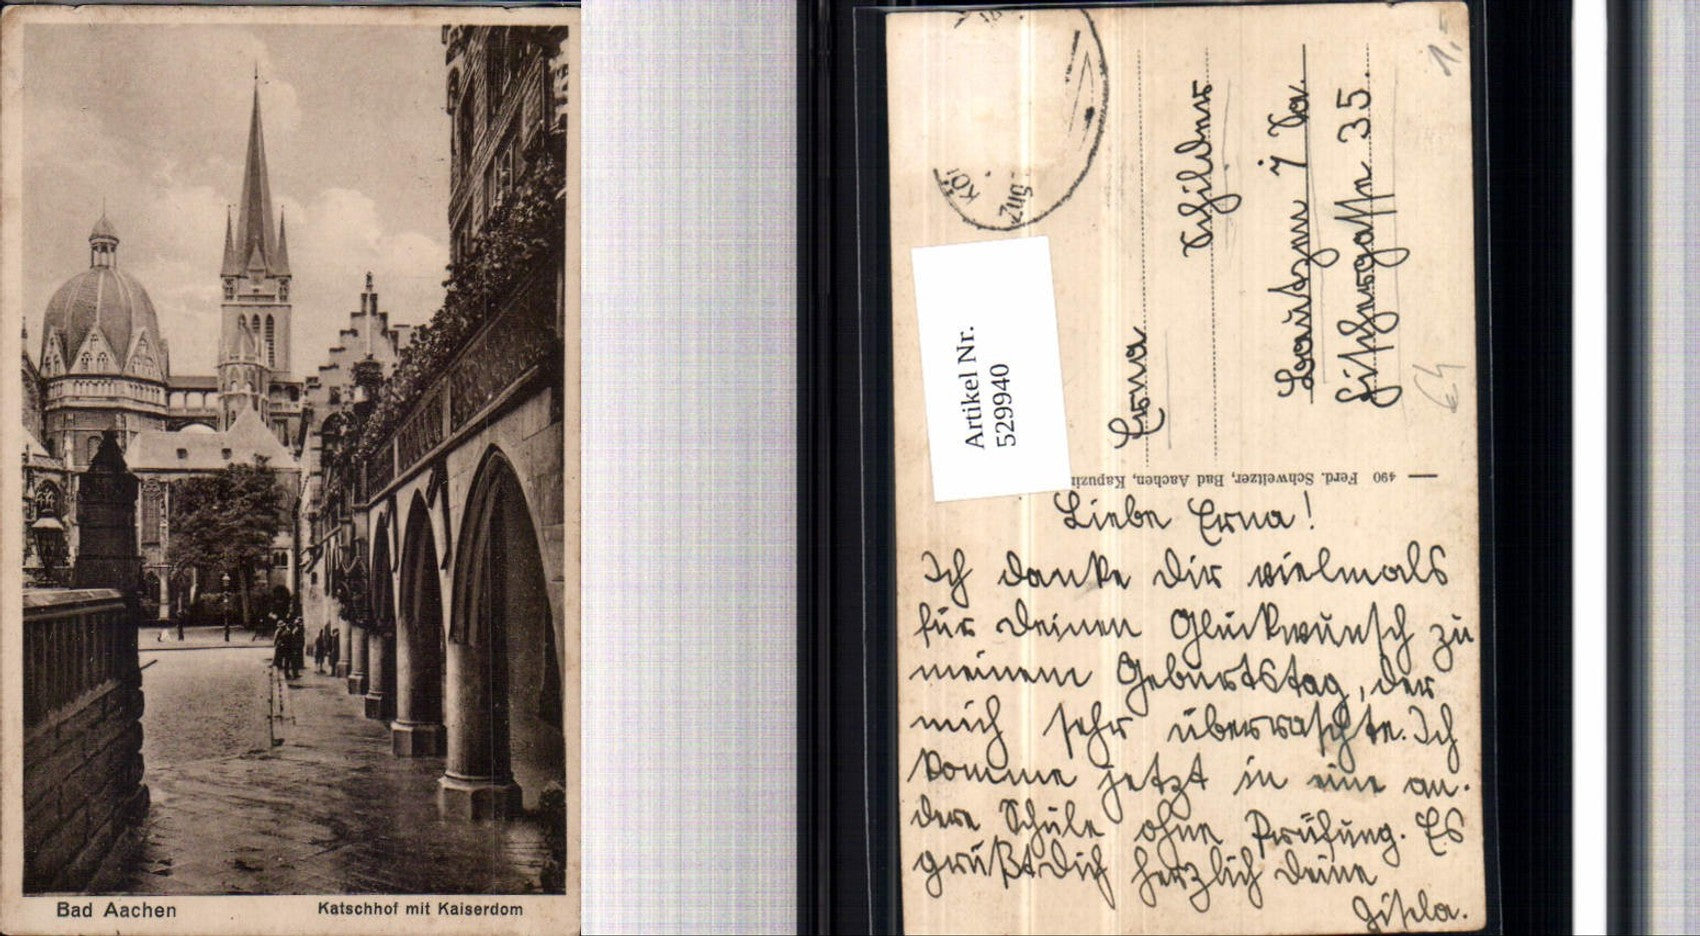 Bad Aachen
Katschhof mit Kaiserdom
KÖL
Zug
Artikel Nr.
529940
1,-
Erna
Schildner
Bautzen i/Sa.
Fischergasse 35.
490 Ferd. Schweitzer, Bad Aachen,
Liebe Erna!
Ich danke Dir vielmals
für Deinen Glückwunsch zu
meinem Geburtstag, der
mich sehr überraschte. Ich
komme jetzt in eine an-
dere Schule ohne Prüfung. Es
grüßt Dich herzlich Deine
Gisela.